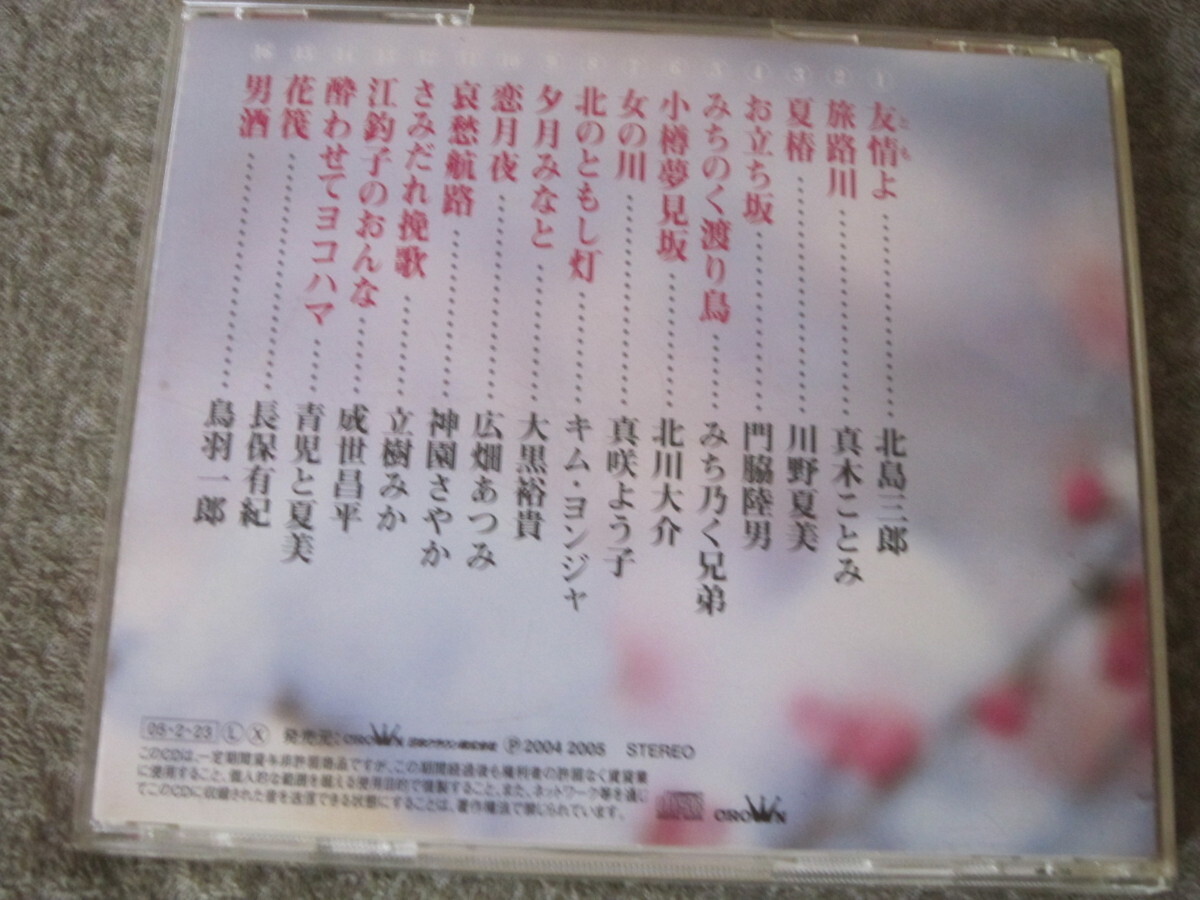 ① 友情よ 北島三郎
とも
② 旅路川 真木ことみ
③ 夏椿 川野夏美
④ お立ち坂 門脇陸男
5 みちのく渡り鳥 みち乃く兄弟
6 小樽夢見坂 北川大介
7 女の川 真咲よう子
8 北のともし灯 キム・ヨンジャ
9 夕月みなと 大黒裕貴
10 恋月夜 広畑あつみ
11 哀愁航路 神園さやか
12 さみだれ挽歌 立樹みか
13 江釣子のおんな 成世昌平
14 酔わせてヨコハマ 青児と夏美
15 花筏 長保有紀
16 男酒 鳥羽一郎
05-2-23 Ⓛ Ⓧ 発売元: CROWN 日本クラウン株式会社 Ⓟ2004 2005 STEREO
このCDは、一定期間貸与非許諾商品ですが、この期間経過後も権利者の許諾なく賃貸業
に使用すること、個人的な範囲を超える使用目的で複製すること、また、ネットワーク等を通じ
てこのCDに収録された音を送信できる状態にすることは、著作権法で禁じられています。
CROWN